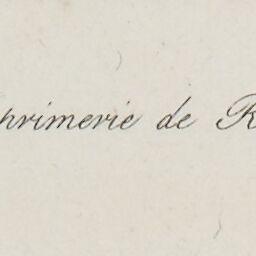 primerie de R